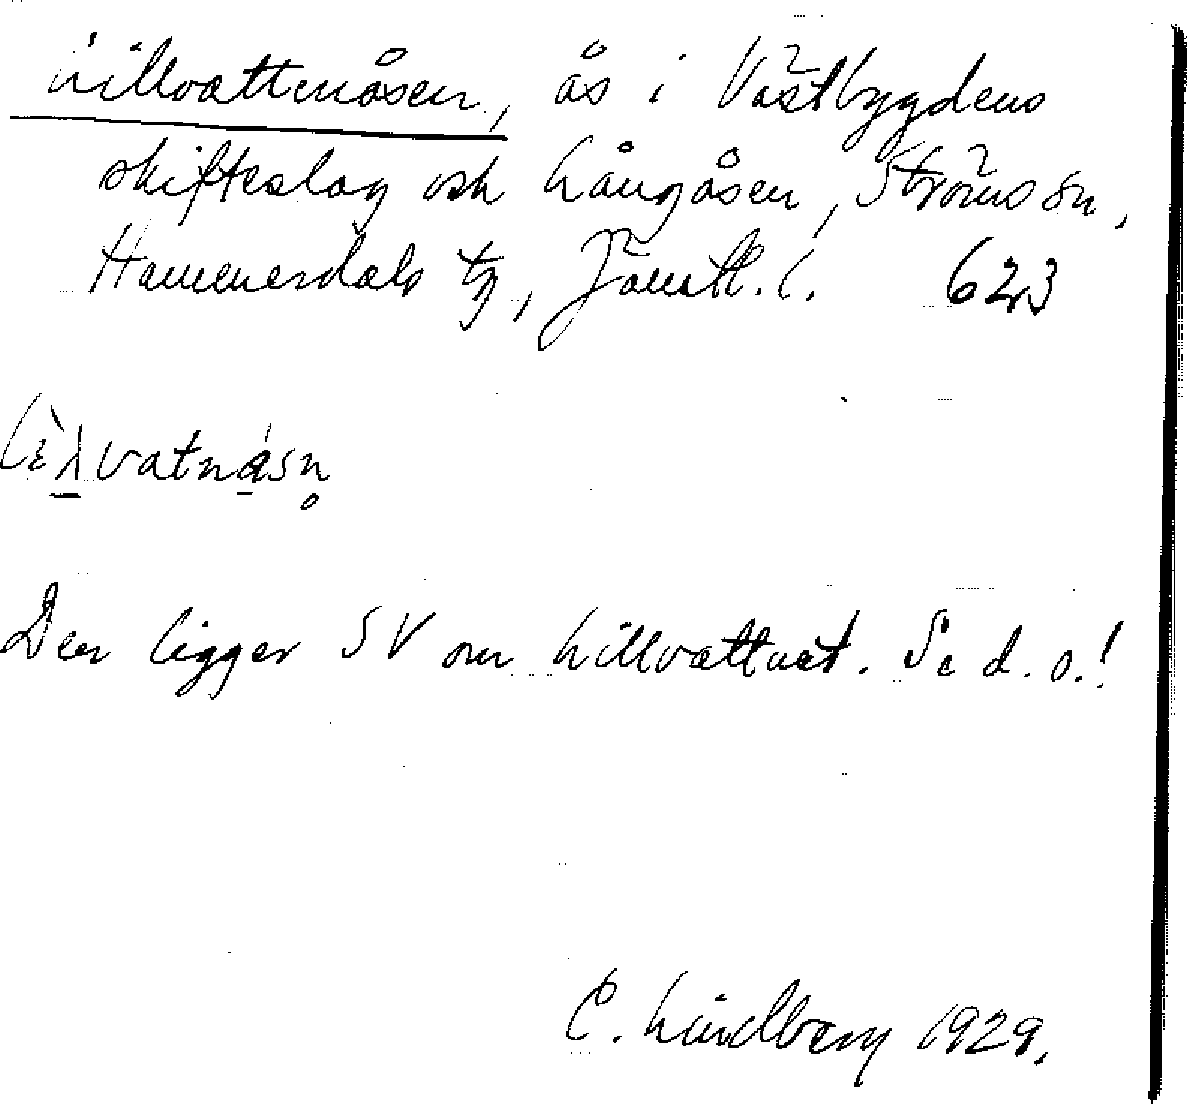 Lillvattenåsen, ås i Västbygdens
skifteslag och Långåsen, Ströms sn,
Hammerdals tg, Jämtl. l. 623
Den ligger SV om Lillvattnet. Se d. o.!
C. Lindberg 1929.